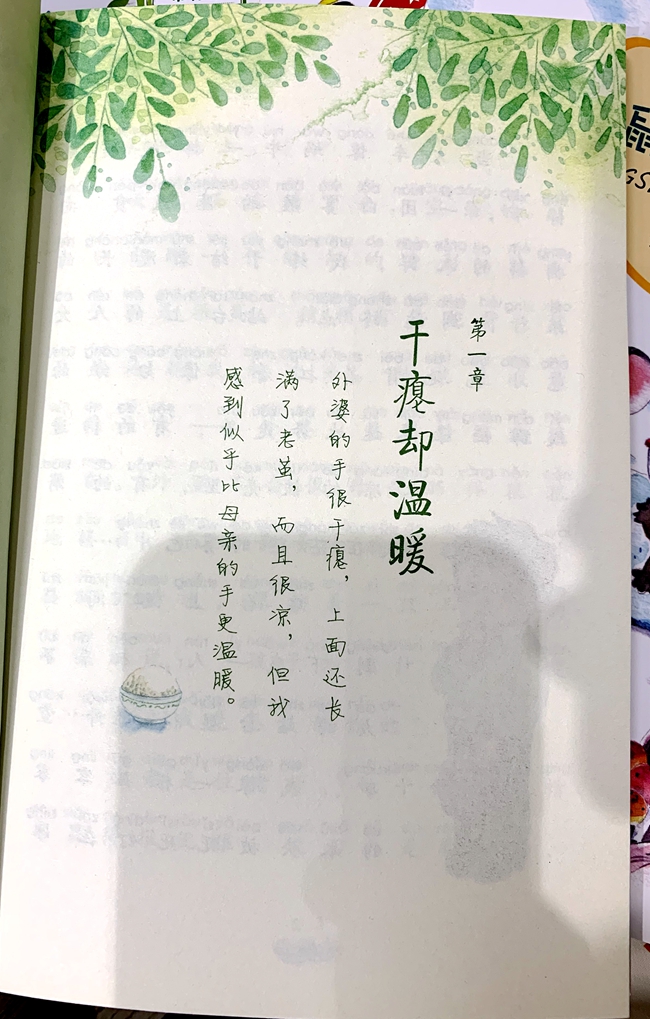 第一章
干瘪却温暖
外婆的手很干瘪，上面还长
满了老茧，而且很凉，但我
感到似乎比母亲的手更温暖。